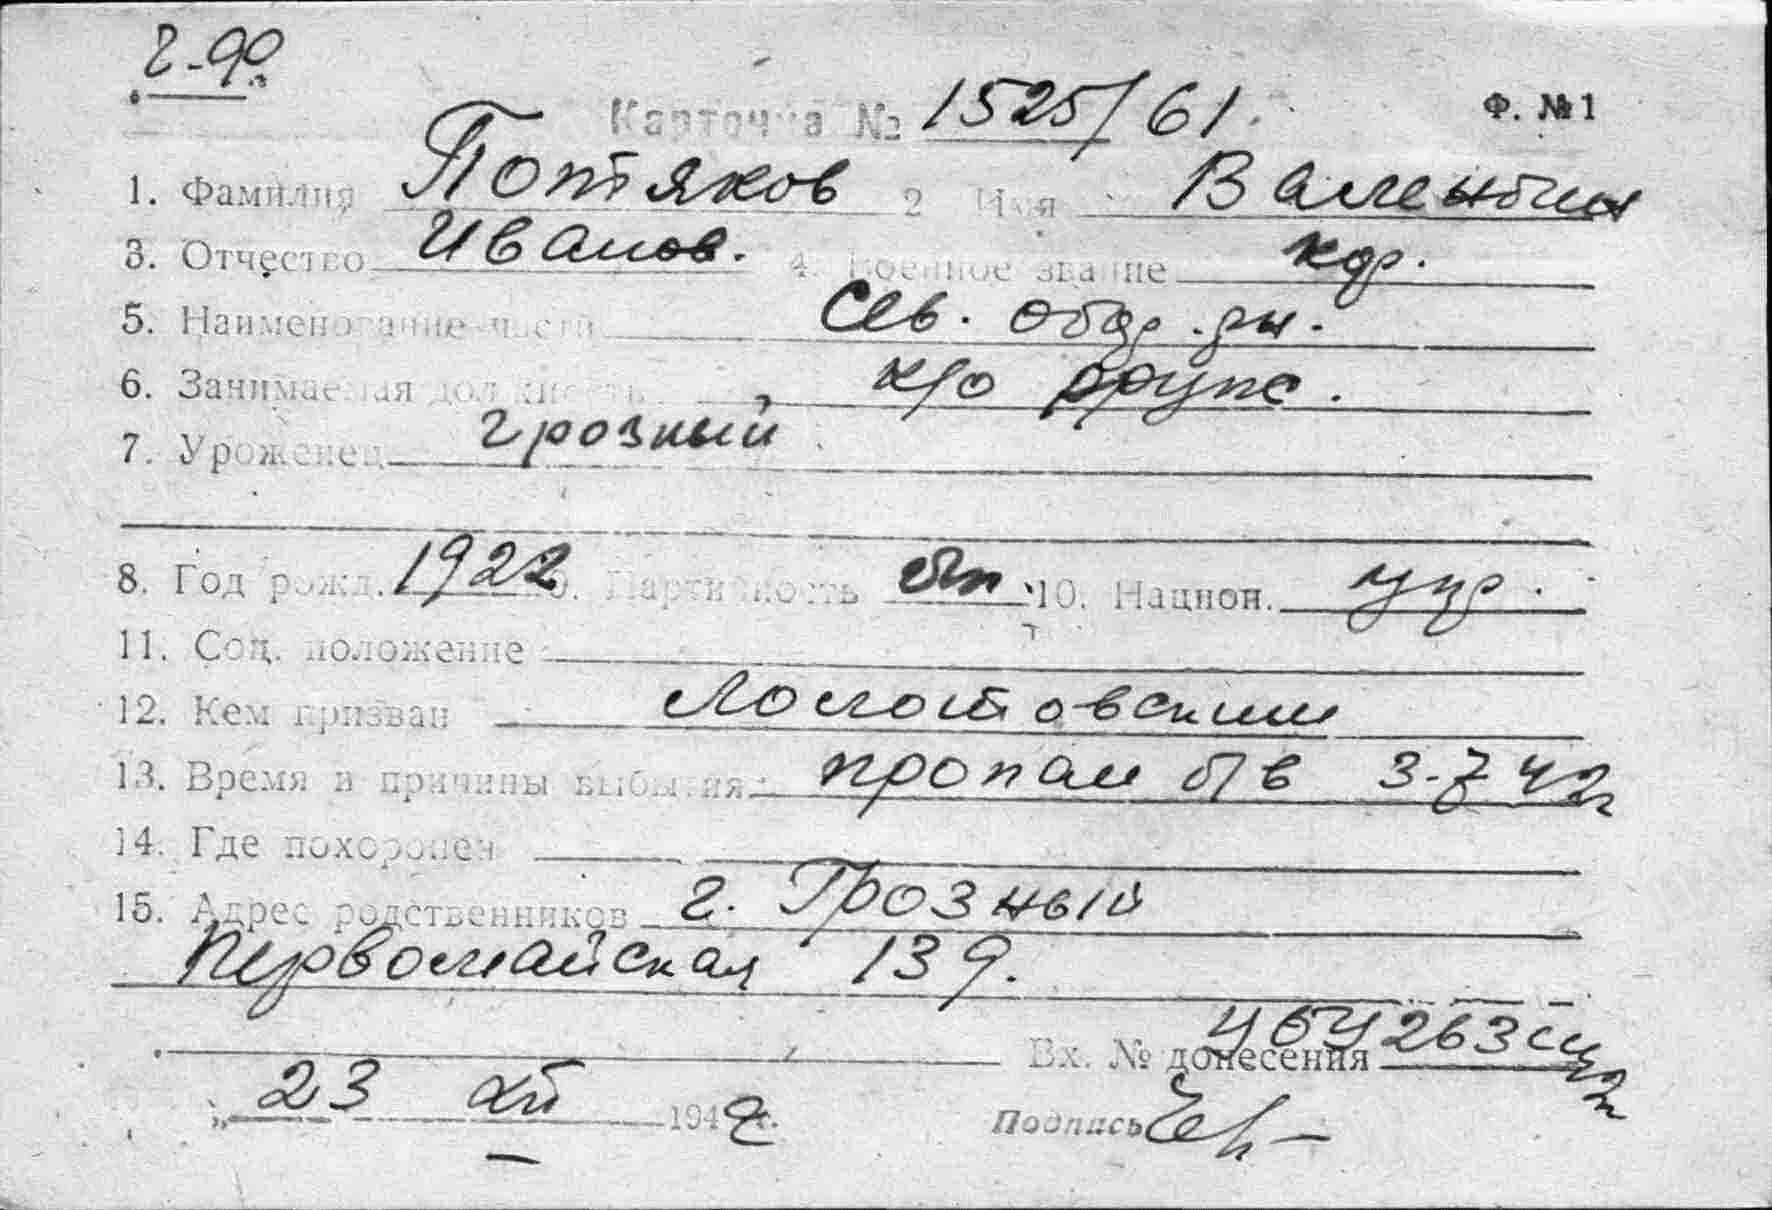 Карточка № 1525/61. Ф. №1
1. Фамилия Потяков 2 Имя Валентин
3. Отчество Иванов. 4. Военное звание кдр.
5. Наименование части Сев. обор. рн.
6. Занимаемая должность к/о
7. Уроженец Грозный
8. Год рожд. 1922 9. Партийность б/п 10. Национ.
11. Соц. положение
12. Кем призван Молотовским
13. Время и причины выбытия пропал б/в 3-7 42г
14. Где похоронен
15. Адрес родственников г. Грозный
Первомайская 139.
Вх. № донесения
„ 23 194 г.
Подпись